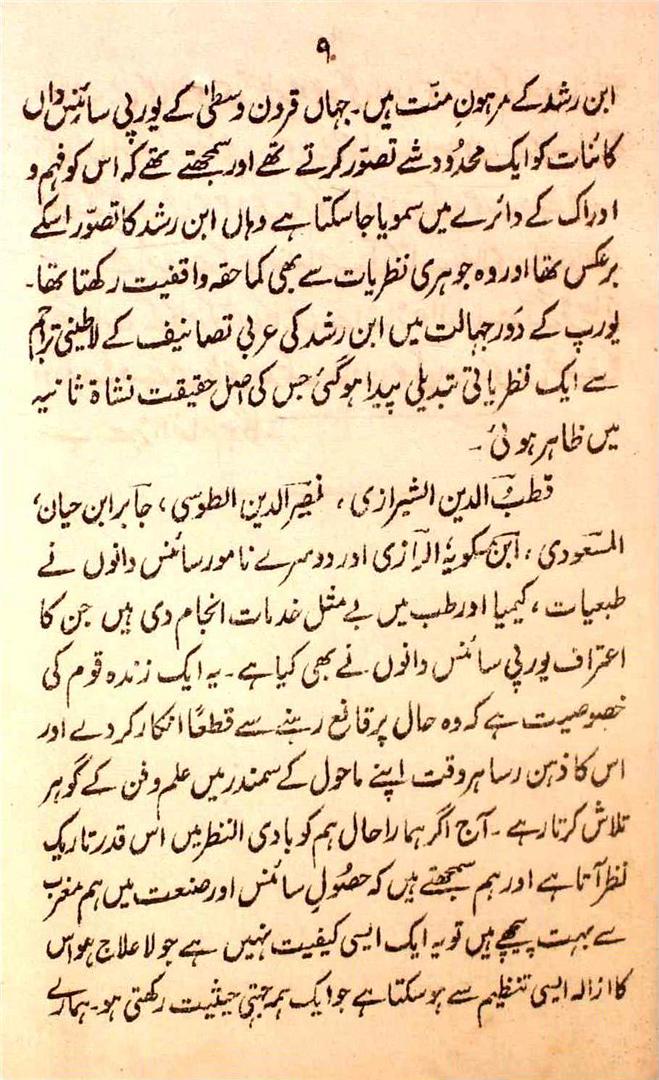 ۹
ابن رشد کے مرہونِ منّت ہیں۔ جہاں قرون وسطیٰ کے یورپی سائنس داں
کائنات کو ایک محدُود شے تصوّر کرتے تھے اور سمجھتے تھے کہ اس کو فہم و
ادراک کے دائرے میں سمویا جا سکتا ہے وہاں ابن رشد کا تصوّر اسکے
برعکس تھا اور وہ جوہری نظریات سے بھی کماحقہ واقفیت رکھتا تھا۔
یورپ کے دَور جہالت میں ابن رشد کی عربی تصانیف کے لاطینی تراجم
سے ایک نظریاتی تبدیلی پیدا ہو گئی جس کی اصل حقیقت نشاۃ ثانیہ
میں ظاہر ہوئی۔
قطبُ الدین الشیرازی، نصیر الدین الطوسی، جابر ابن حیان،
المسعودی، ابن مسکویہ، الرازی اور دوسرے نامور سائنس دانوں نے
طبعیات، کیمیا اور طب میں بے مثل خدمات انجام دی ہیں جن کا
اعتراف یورپی سائنس دانوں نے بھی کیا ہے۔ یہ ایک زندہ قوم کی
خصوصیت ہے کہ وہ حال پر قانع رہنے سے قطعاً انکار کر دے اور
اس کا ذہن رسا ہر وقت اپنے ماحول کے سمندر میں علم و فن کے گوہر
تلاش کرتا رہے۔ آج اگر ہمارا حال ہم کو بادی النظر میں اس قدر تاریک
نظر آتا ہے اور ہم سمجھتے ہیں کہ حصُولِ سائنس اور صنعت میں ہم مغرب
سے بہت پیچھے ہیں تو یہ ایک ایسی کیفیت نہیں ہے جو لا علاج ہو اس
کا ازالہ ایسی تنظیم سے ہو سکتا ہے جو ایک ہمہ جہتی حیثیت رکھتی ہو۔ ہمارے